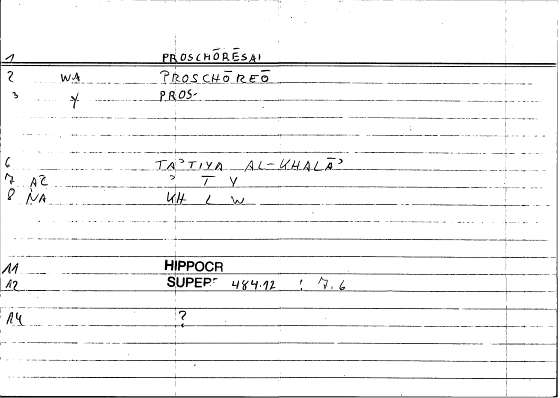 1 PROSCHŌRĒSAI
2 WA PROSCHŌREŌ
3 Y PROS-
6 TAʾTIYA AL-KHALĀʾ
7 AC ʾ T Y
8 NA KH L W
11 HIPPOCR
12 SUPERF 484.12 : 7.6
14 ?